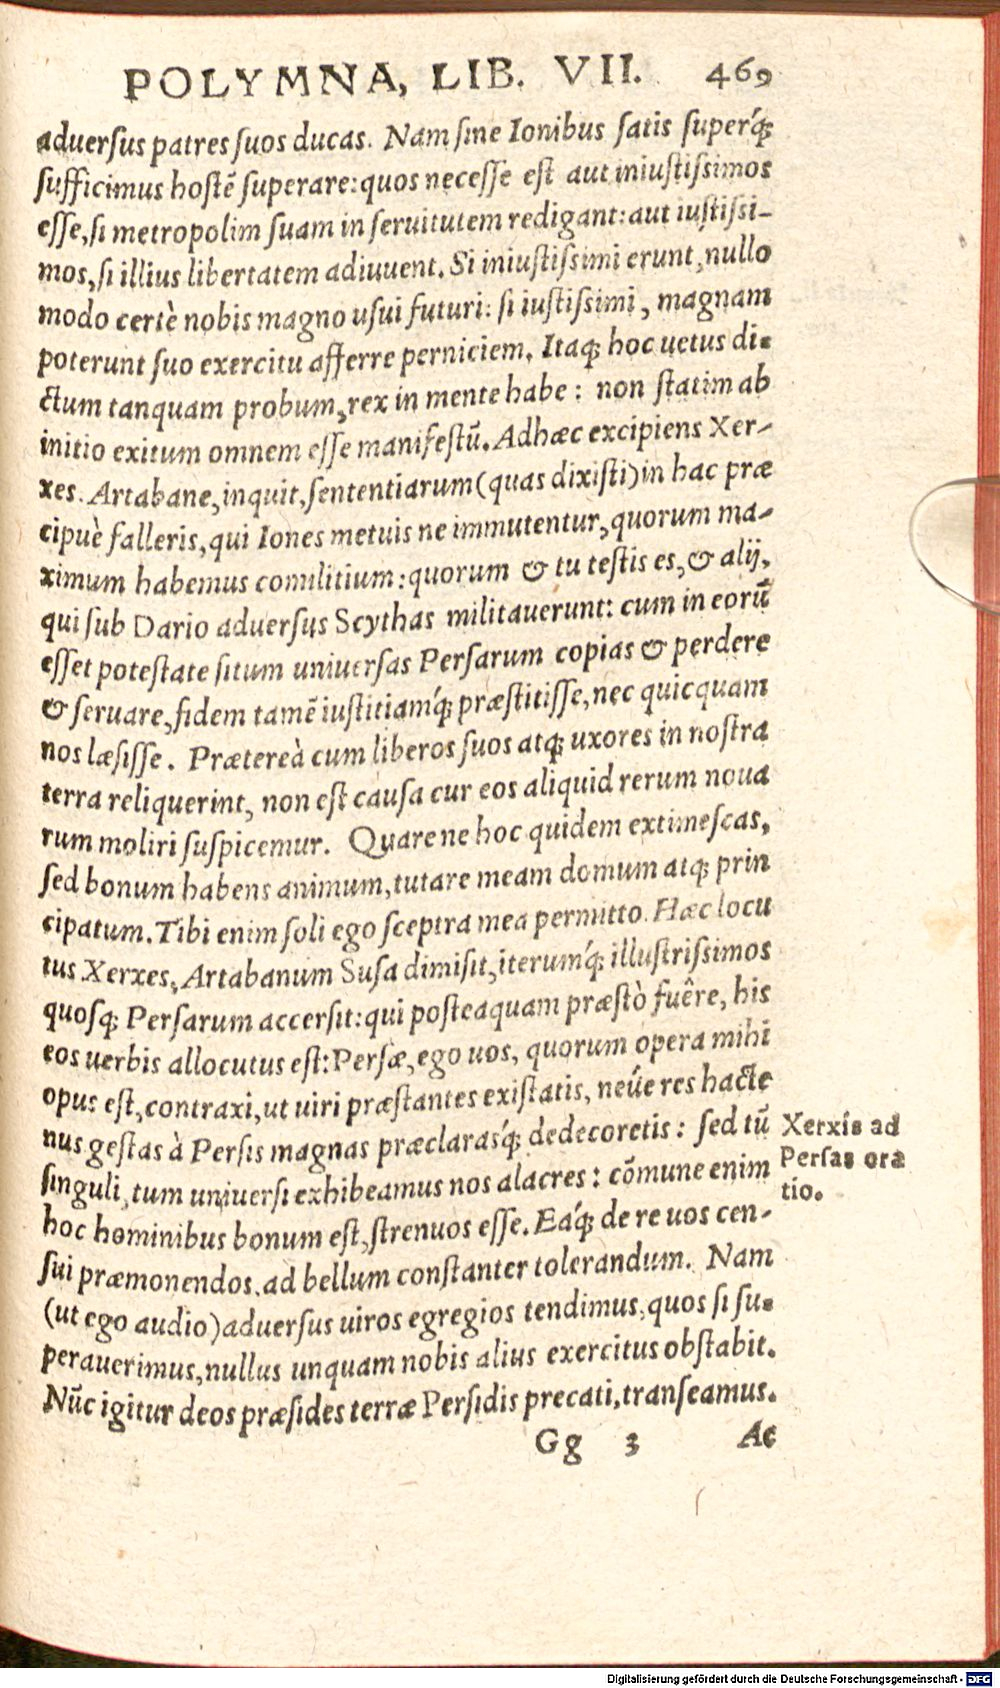 POLYMNA, LIB. VII. 469
aduerſus patres ſuos ducas. Nam ſine Ionibus ſatis ſuperq́;
ſufficimus hoſtē ſuperare: quos neceſſe eſt aut iniuſtiſsimos
eſſe, ſi metropolim ſuam in ſeruitutem redigant: aut iuſtiſsi-
mos, ſi illius libertatem adiuuent. Si iniuſtiſsimi erunt, nullo
modo certè nobis magno uſui futuri: ſi iuſtiſsimi, magnam
poterunt ſuo exercitu afferre perniciem. Itaq; hoc uetus di-
ctum tanquam probum, rex in mente habe: non ſtatim ab
initio exitum omnem eſſe manifeſtū. Ad hæc excipiens Xer-
xes. Artabane, inquit, ſententiarum (quas dixiſti) in hac præ
cipuè falleris, qui Iones metuis ne immutentur, quorum ma-
ximum habemus comilitium: quorum & tu teſtis es, & alij,
qui ſub Dario aduerſus Scythas militauerunt: cum in eorū
eſſet poteſtate ſitum uniuerſas Perſarum copias & perdere
& ſeruare, fidem tamē iuſtitiamq́; præſtitiſſe, nec quicquam
nos læſiſſe. Prætereà cum liberos ſuos atq; uxores in noſtra
terra reliquerint, non eſt cauſa cur eos aliquid rerum noua
rum moliri ſuſpicemur. Quare ne hoc quidem extimeſcas,
ſed bonum habens animum, tutare meam domum atq; prin
cipatum. Tibi enim ſoli ego ſceptra mea permitto. Hæc locu
tus Xerxes, Artabanum Suſa dimiſit, iterumq́; illuſtriſsimos
quoſq; Perſarum accerſit: qui poſteaquam præſtò fuêre, his
eos uerbis allocutus eſt: Perſæ, ego uos, quorum opera mihi
opus eſt, contraxi, ut uiri præſtantes exiſtatis, neúe res hacte
nus geſtas à Perſis magnas præclaraſq́; dedecoretis: ſed tū
ſinguli, tum uniuerſi exhibeamus nos alacres: cōmune enim
hoc hominibus bonum eſt, ſtrenuos eſſe. Eáq; de re uos cen-
ſui præmonendos, ad bellum conſtanter tolerandum. Nam
(ut ego audio) aduerſus uiros egregios tendimus, quos ſi ſu-
perauerimus, nullus unquam nobis alius exercitus obſtabit.
Nūc igitur deos præſides terræ Perſidis precati, tranſeamus.
Gg 3 Ac
Xerxis ad
Perſas ora
tio.
Digitalisierung gefördert durch die Deutsche Forschungsgemeinschaft - DFG